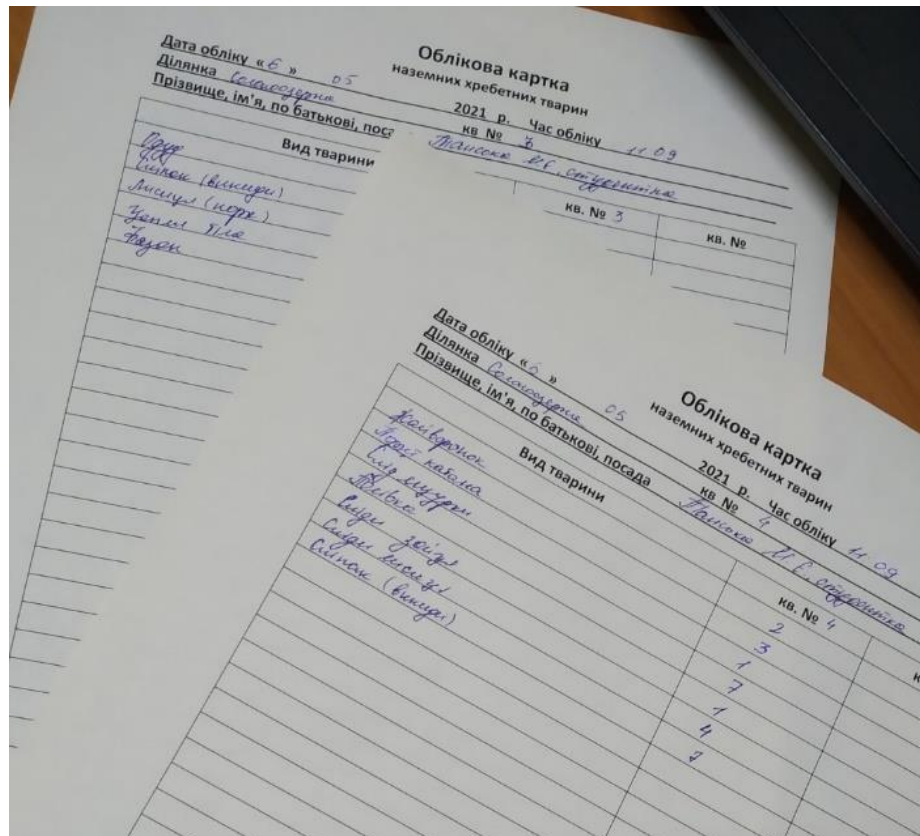 Облікова картка
наземних хребетних тварин
Дата обліку «6» 05 2021 р. Час обліку 11 09
Ділянка Солоноозерна кв № 3
Прізвище, ім'я, по батькові, поса М.Є. студентка
Вид тварини кв. № 3 кв. №
Сліпак (викиди)
Лисиця (нора)
Чапля біла
Фазан
Облікова картка
наземних хребетних тварин
Дата обліку «6» 05 2021 р. Час обліку 11 09
Ділянка Солоноозерна кв № 4
Прізвище, ім'я, по батькові, посада М.Є. студентка
Вид тварини кв. № 4 к
Жайворонок 2
кабана 3
Слід ящурки 1
7
Сліди зайця 1
Сліди лисиці 4
Сліпак (викиди) 7